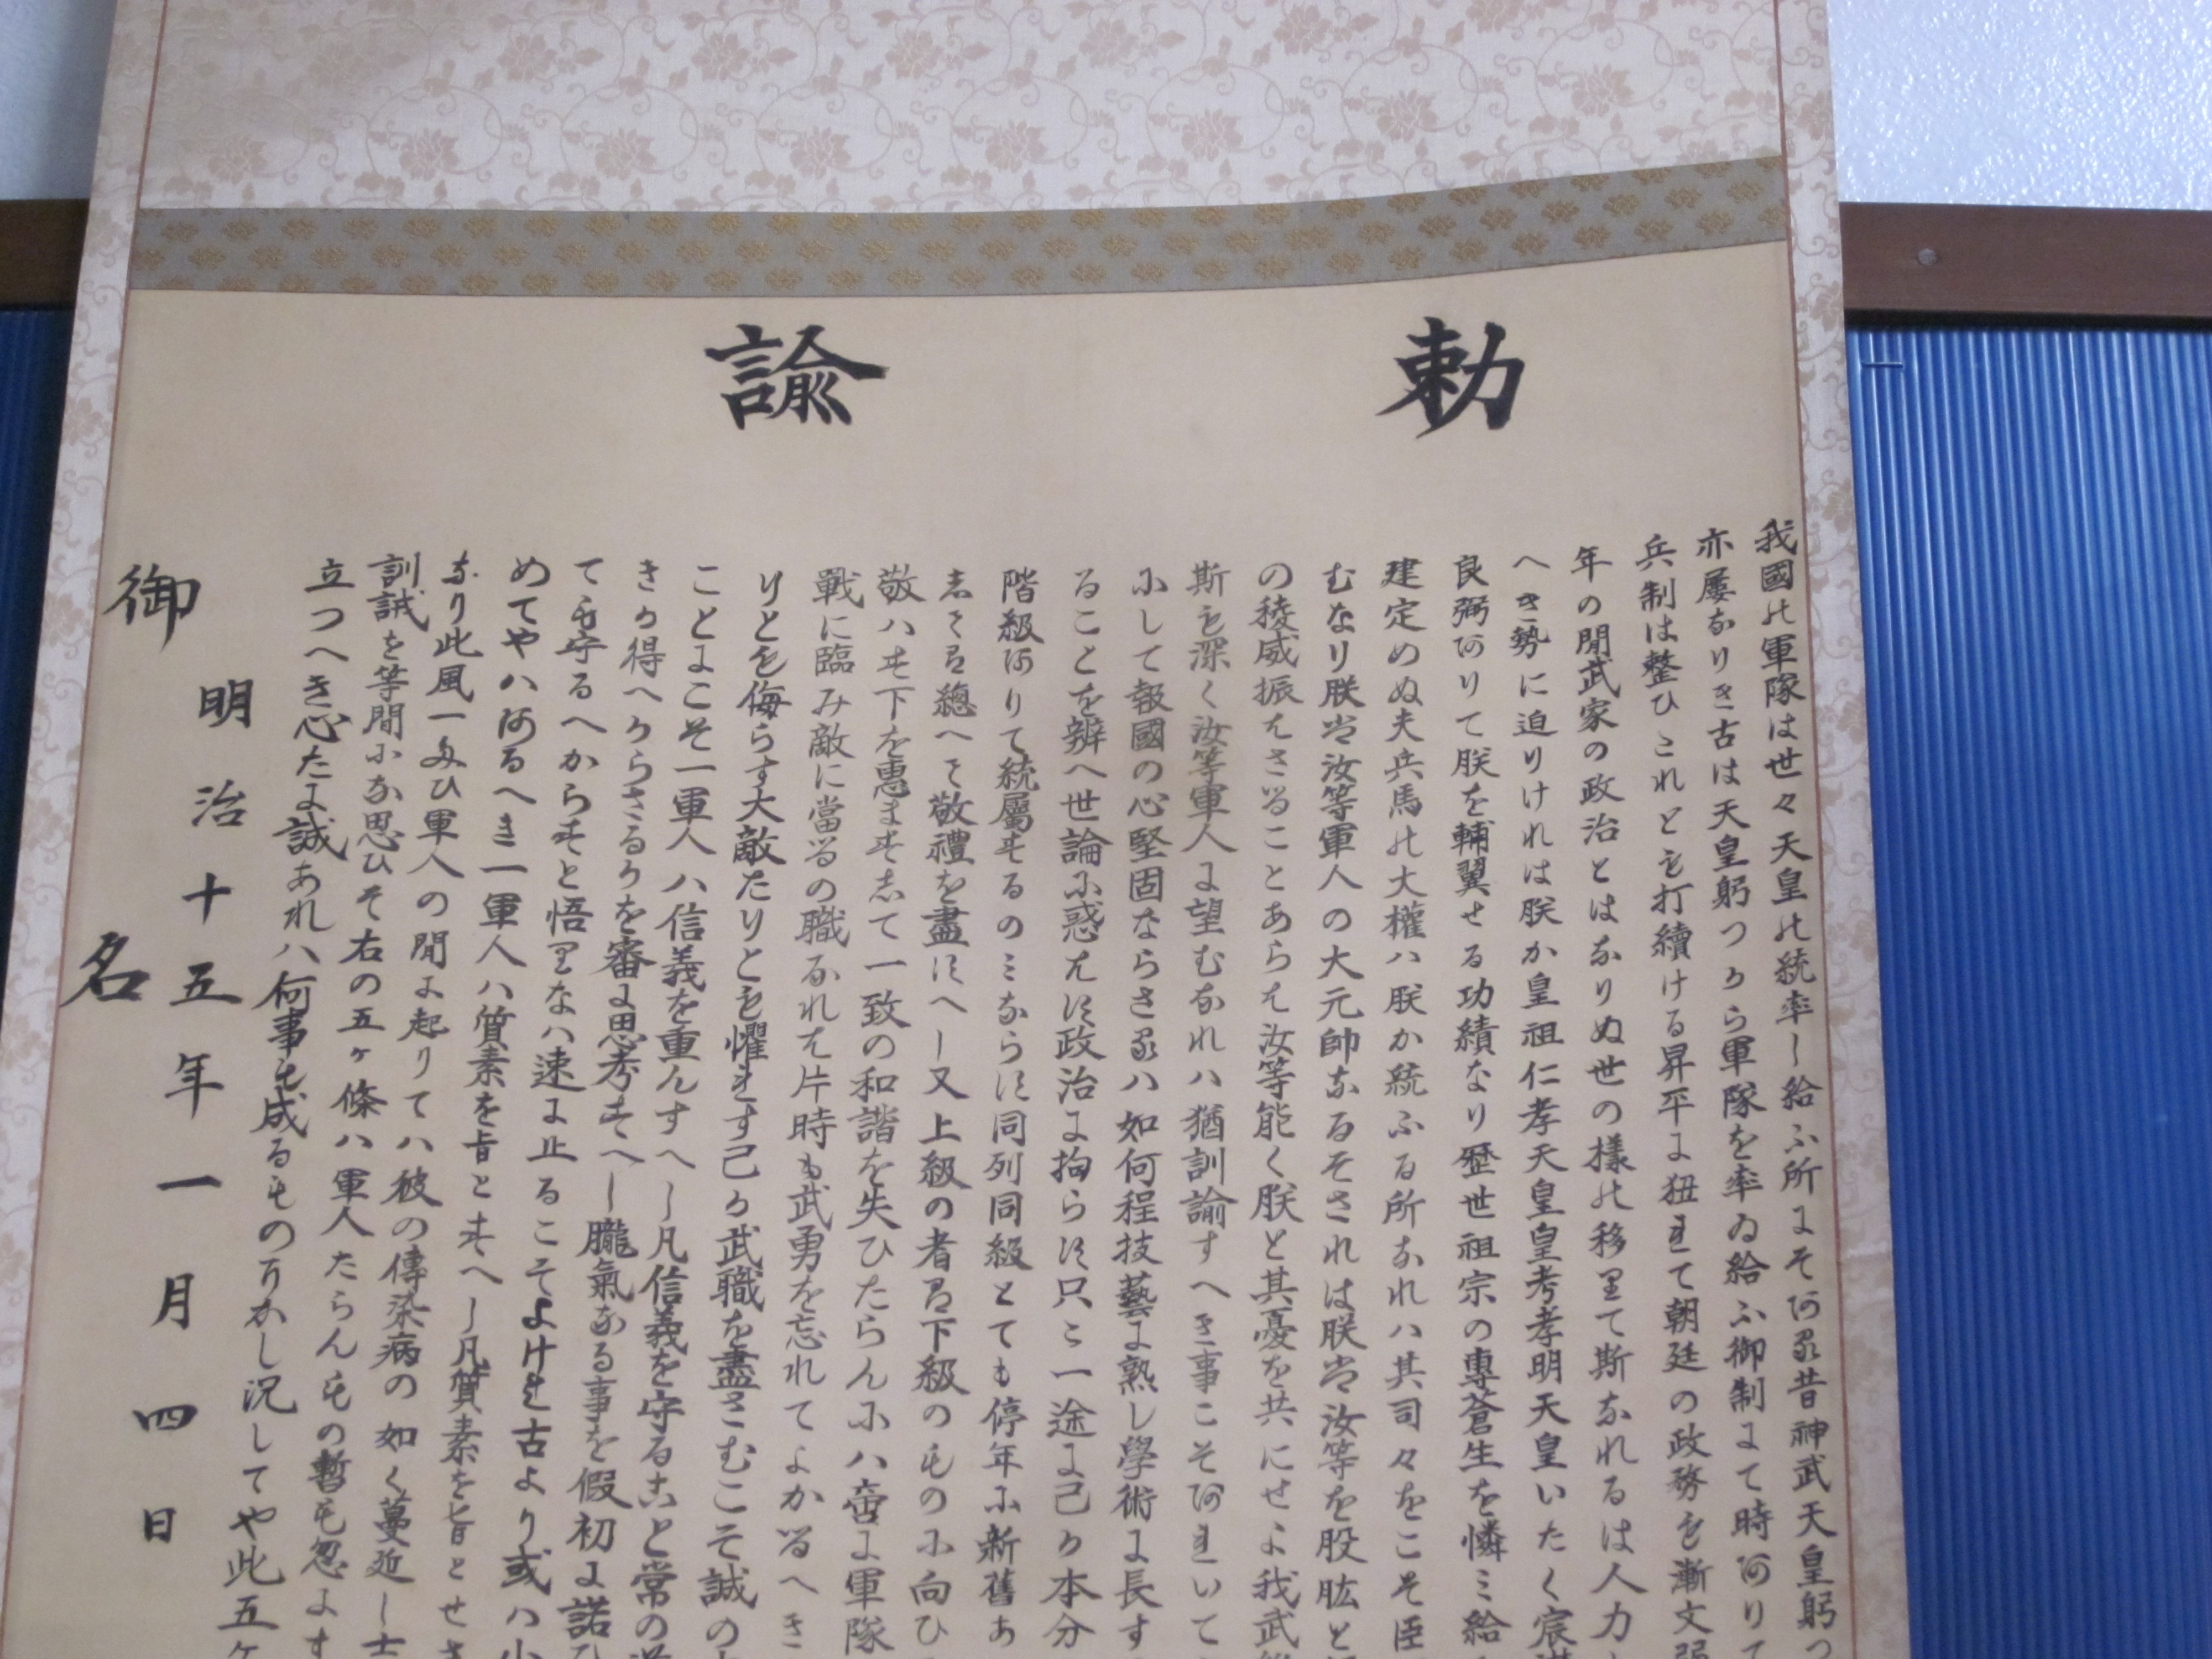 勅諭
我國の軍隊は世々天皇の統率し給ふ所にそある昔神武天皇躬つ
亦屡なりき古は天皇躬つから軍隊を率ゐ給ふ御制にて時ありて
兵制は整ひこれとも打續ける昇平に狃れて朝廷の政務も漸文弱
年の間武家の政治とはなりぬ世の様の移りて斯なれるは人力
へき勢に迫りけれは朕か皇祖仁孝天皇皇考孝明天皇いたく宸
良弼ありて朕を輔翼せる功績なり歴世祖宗の專蒼生を憐み給
建定めぬ夫兵馬の大權ハ朕か統ふる所なれハ其司々をこそ臣
むなり朕ハ汝等軍人の大元帥なるそされは朕ハ汝等を股肱と
の稜威振はさることあらは汝等能く朕と其憂を共にせよ我武
斯も深く汝等軍人に望むなれハ猶訓諭すへき事こそあれいて
にして報國の心堅固ならさるハ如何程技藝に熟し學術に長す
ることを辨へ世論に惑はす政治に拘らす只ゝ一途に己か本分
階級ありて統屬するのみならす同列同級とても停年に新舊あ
しては總へて敬禮を盡すへし又上級の者は下級のものに向ひ
敬ハす下を惠ますして一致の和諧を失ひたらんにハ啻に軍隊
戰に臨み敵に當るの職なれは片時も武勇を忘れてよかるへき
りとも侮らす大敵たりとも懼れす己か武職を盡さむこそ誠の
ことにこそ一軍人ハ信義を重んすへし凡信義を守ること常の
きか得へからさるかを審に思考すへし朧氣なる事を假初に諾ひ
ても守るへからすと悟りなは速に止るこそよけれ古より或ハ小
めてやハあるへき一軍人ハ質素を旨とすへし凡質素を旨とせさ
なり此風一たひ軍人の間に起りてハ彼の傳染病の如く蔓延し士
訓誡を等閒にな思ひそ右の五ヶ條ハ軍人たらんもの暫も忽にす
立つへき心たに誠あれハ何事も成るものそかし況してや此五ヶ
明治十五年一月四日
御名